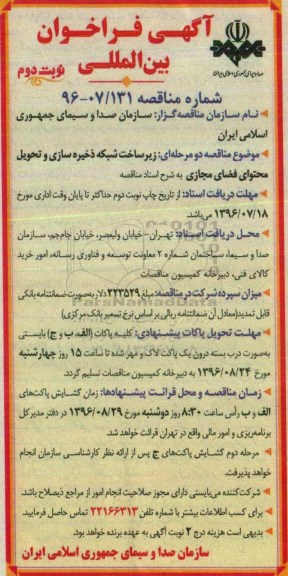 آگهی فراخوان
بین‌المللی
نوبت دوم
صدا و سیمای جمهوری اسلامی ایران
شماره مناقصه ۹۶-۰۷/۱۳۱
نـام سـازمان مناقصه‌گـزار: سـازمان صـدا و سـیمای جمهـوری
اسلامی ایران
موضوع مناقصه دو مرحله‌ای: زیرساخت شبکه ذخیره سازی و تحویل
محتوای فضای مجازی به شرح اسناد مناقصه
مهلت دریافت اسناد: از تاریخ چاپ نوبت دوم حداکثر تا پایان وقت اداری مورخ
۱۳۹۶/۰۷/۱۸ می‌باشد.
محـل دریافت اسـناد: تهـران - خیابان ولیعصر، خیابان جام‌جم، سازمان
صدا و سیما، ساختمان شماره ۲ معاونت توسعه و فناوری رسانه، امور خرید
کالای فنی، دبیرخانه کمیسیون مناقصات
میزان سپرده شرکت در مناقصه: مبلغ ۲۲۳۵۲۹ دلار به صورت ضمانتنامه بانکی
قابل تمدید (معادل آن ضمانتنامه ریالی بر اساس نرخ تسعیر بانک مرکزی)
مهلـت تحویل پاکات پیشـنهادی: کلیـه پـاکات (الف، ب و ج) بایستی
به‌صورت درب بسته درون یک پاکت لاک و مهر شده تا ساعت ۱۵ روز چهارشنبه
مورخ ۱۳۹۶/۰۸/۲۴ به دبیرخانه کمیسیون مناقصات تسلیم گردد.
زمـان مناقصـه و محل قرائـت پیشـنهادها: زمان گشایش پاکت‌های
الف و ب رأس ساعت ۸:۳۰ روز دوشنبه مورخ ۱۳۹۶/۰۸/۲۹ در دفتر مدیر کل
برنامه‌ریزی و امور مالی واقع در تهران قرائت خواهد شد.
مرحله دوم گشایش پاکت‌های ج پس از ارائه نظر کارشناسی سازمان انجام
خواهد پذیرفت.
شرکت‌کننده می‌بایستی دارای مجوز صلاحیت انجام امور از مراجع ذیصلاح باشد.
برای کسب اطلاعات بیشتر با شماره تلفن ۲۲۱۶۶۳۱۳ تماس حاصل فرمایید.
بدیهی است هزینه درج ۲ نوبت آگهی به عهده برنده خواهد بود.
سازمان صدا و سیمای جمهوری اسلامی ایران